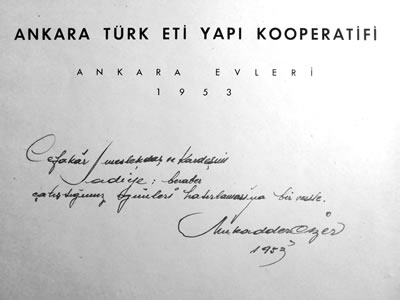 ANKARA TÜRK ETİ YAPI KOOPERATİFİ
ANKARA EVLERİ
1953
Cefakâr meslekdaş ve Kardeşim
Sadiye; beraber
çalıştığımız günleri hatırlamasına bir vesile.
Mukadder Özer
1953